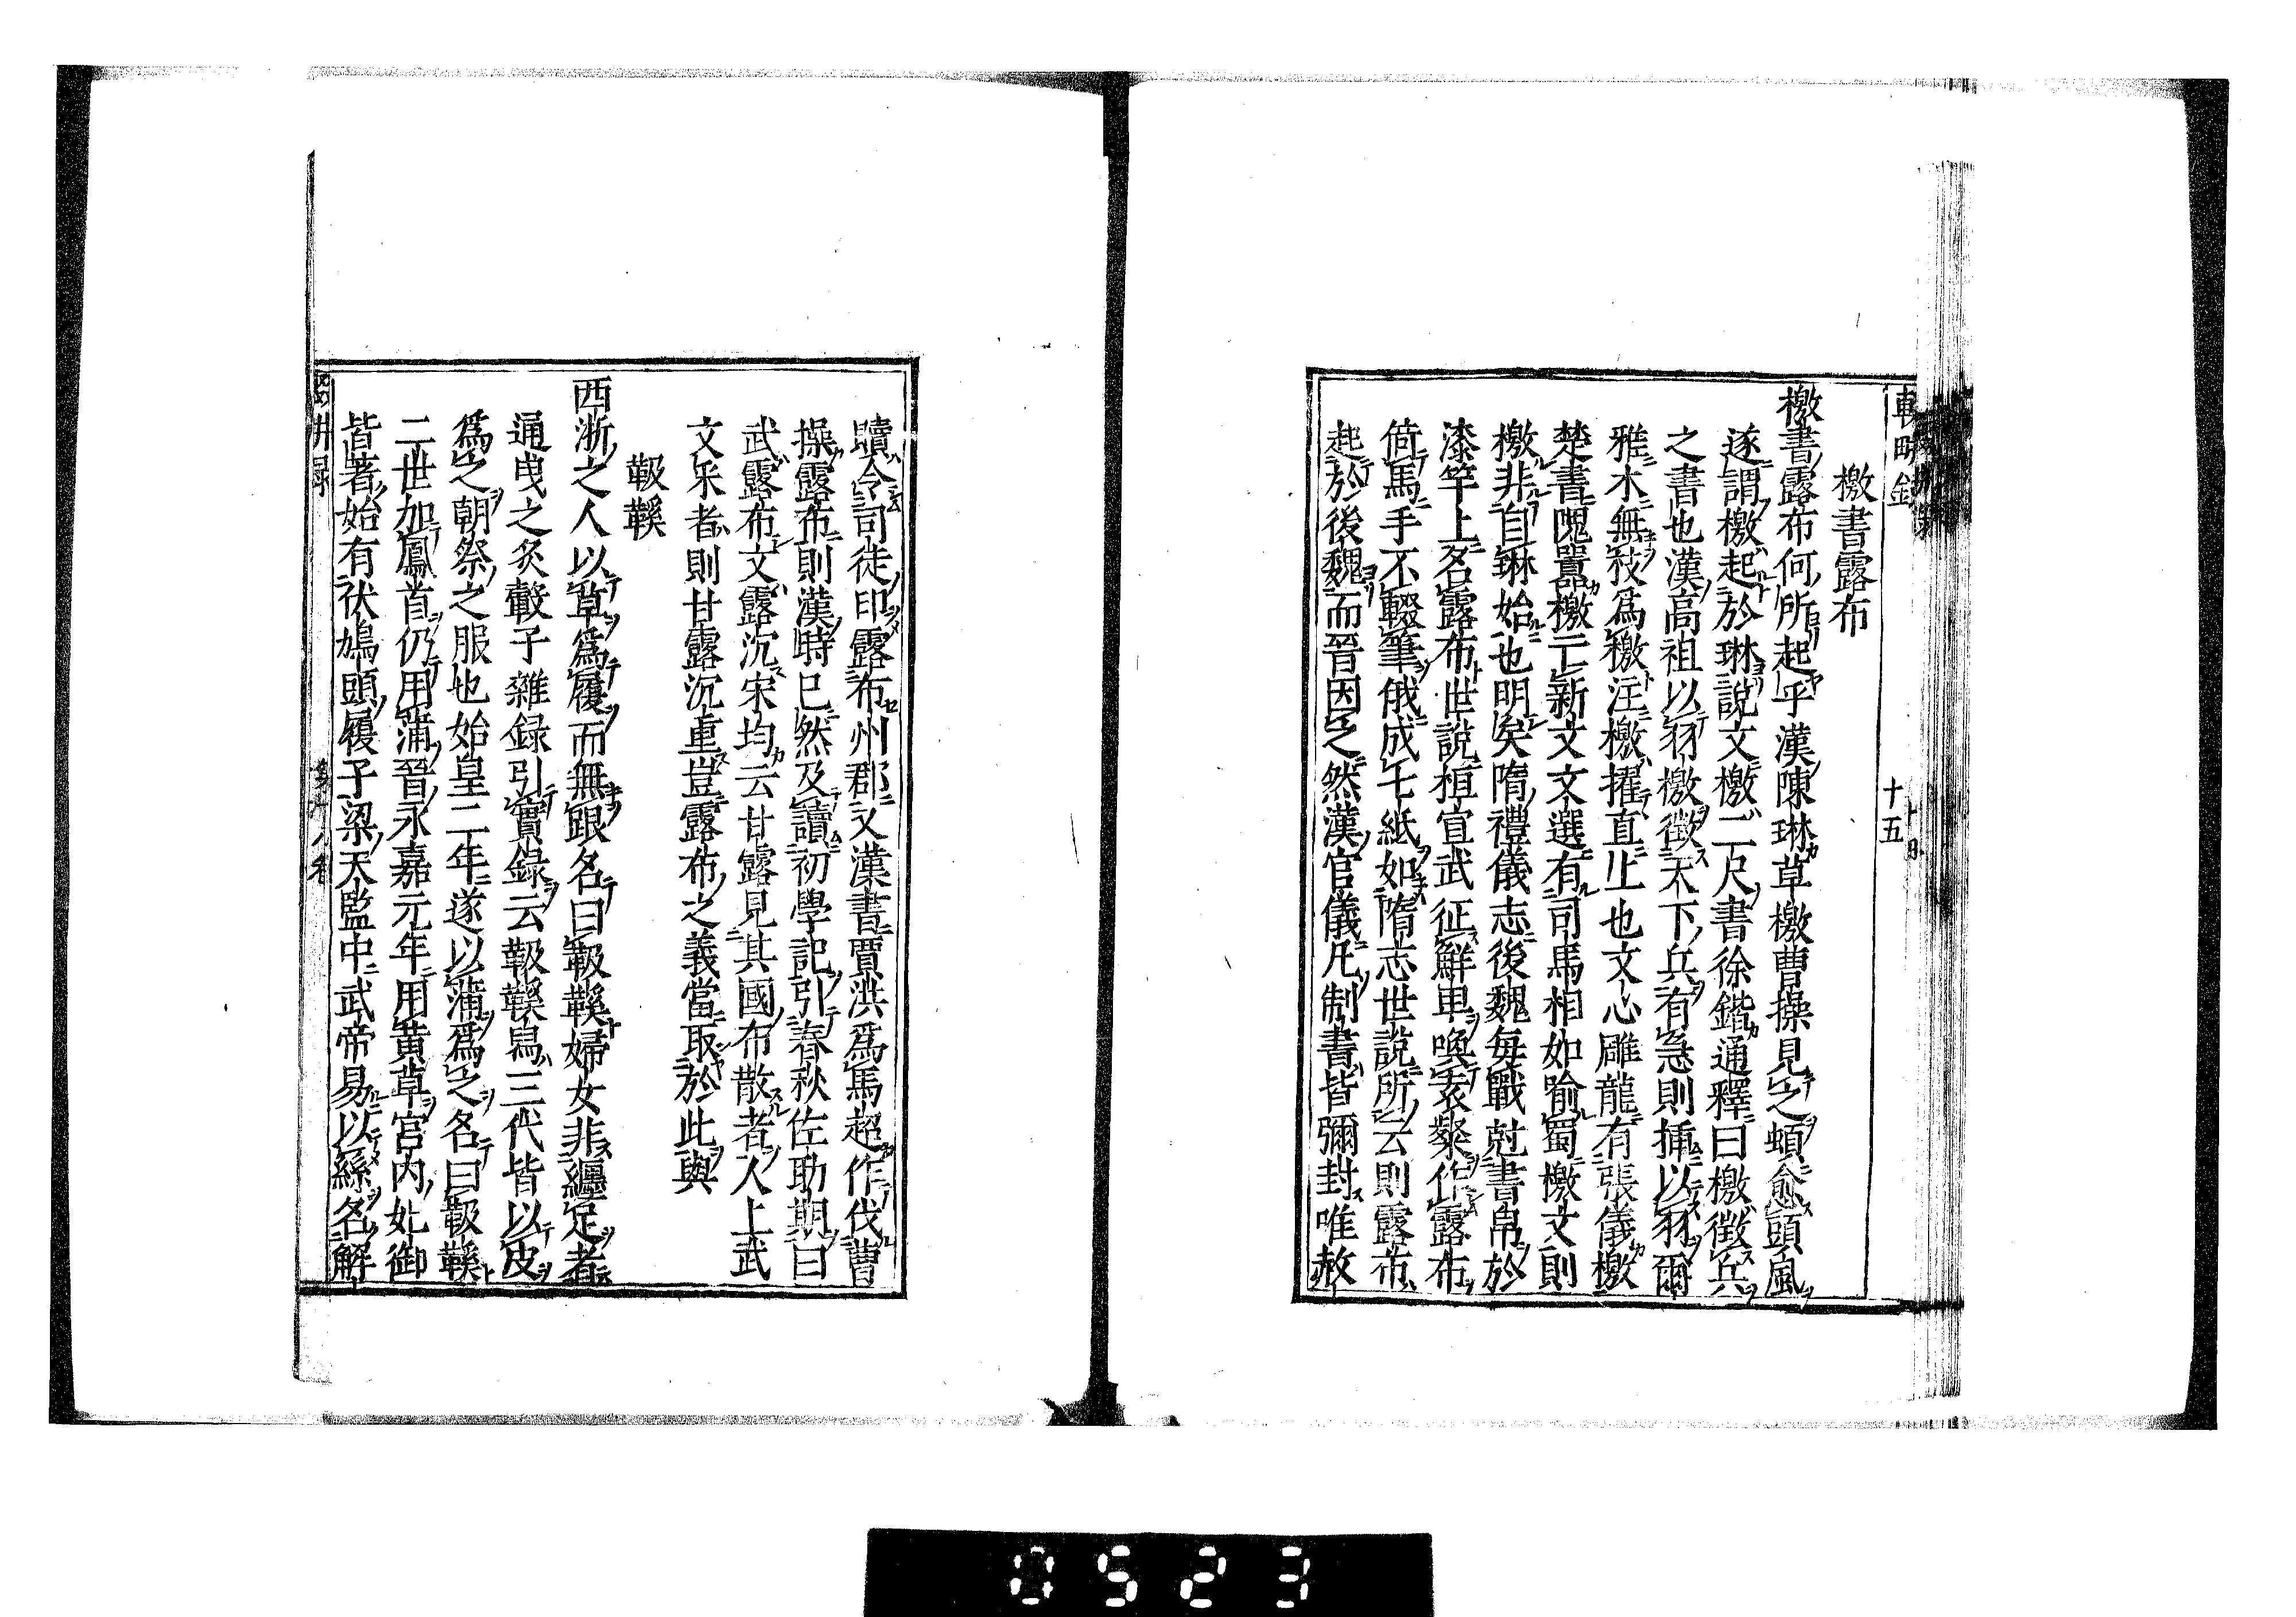 輟畊錄 十五
檄書露布
檄書露布何所起乎漢陳琳草檄曹操見之頓愈頭風
遂謂檄起於琳說文檄二尺書徐鍇通釋曰檄徵兵
之書也漢高祖以羽檄徵天下兵有急則揷以羽爾
雅木無枝爲檄注檄擢直上也文心雕龍有張儀檄
楚書隗囂檄亡新文文選有司馬相如喻蜀檄文則
檄非自琳始也明矣隋禮儀志後魏每戰尅書帛於
漆竿上名露布世說桓宣武征鮮卑喚袁粲作露布
倚馬手不輟筆俄成七紙如隋志世說所云則露布
起於後魏而晉因之然漢官儀凡制書皆彌封唯赦
贖令司徒印露布州郡又漢書賈洪爲馬超作伐曹
操露布則漢時已然及讀初學記引春秋佐助期曰
武露布文露沉宋均云甘露見其國布散者人上武
文采者則甘露沉重豈露布之義當取於此與
靸鞵
西浙之人以草爲履而無跟名曰靸鞵婦女非纏足者
通曳之炙轂子雜録引實録云靸鞵舄三代皆以皮
爲之朝祭之服也始皇二年遂以蒲爲之名曰靸鞵
二世加鳳首仍用蒲晉永嘉元年用黄草宮内妃御
皆著始有伏鳩頭履子梁天監中武帝易以絲名解
0523